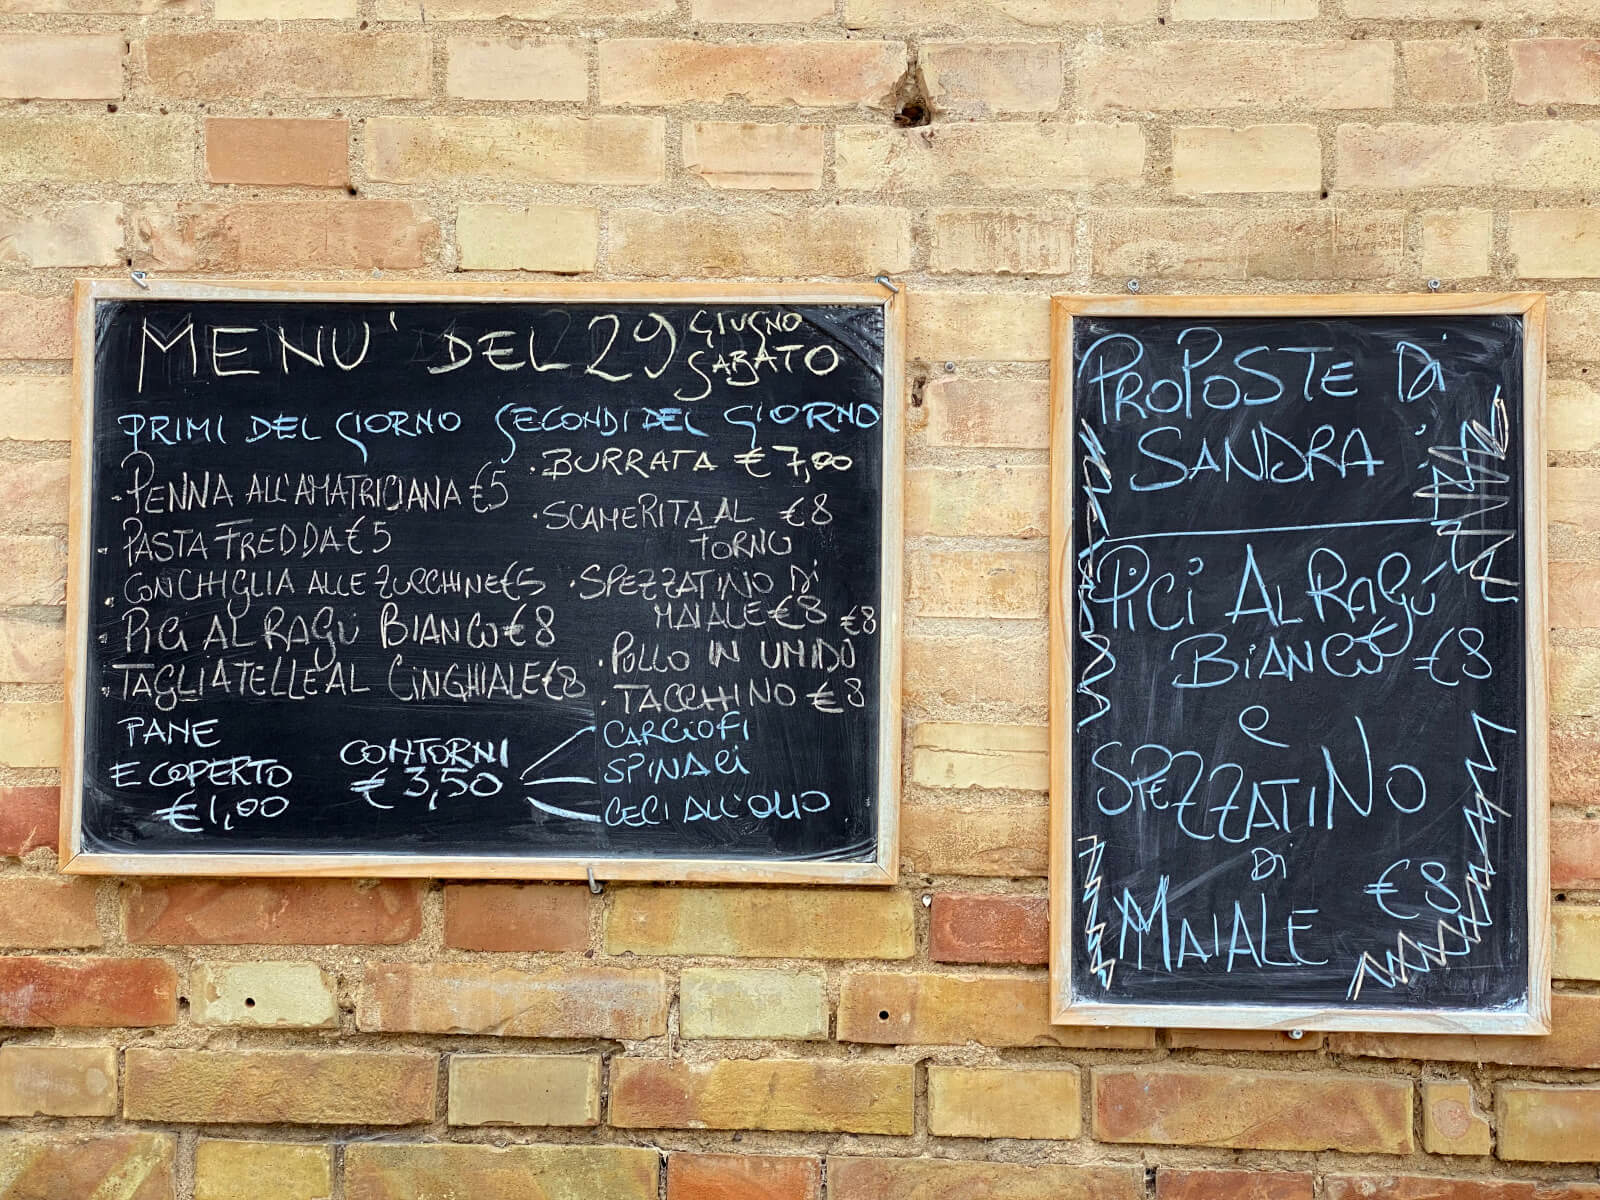 MENU' DEL 29 GIUGNO
SABATO
PRIMI DEL GIORNO
PENNA ALL'AMATRICIANA €5
PASTA FREDDA €5
CONCHIGLIA ALLE ZUCCHINE €5
PICI AL RAGÚ BIANCO €8
TAGLIATELLE AL CINGHIALE €8
SECONDI DEL GIORNO
BURRATA €7,00
SCAMERITA AL €8
FORNO
SPEZZATINO Di
MAIALE €8
€8
POLLO IN UMIDO
TACCHINO €8
PANE
E COPERTO
€1,00
CONTORNI
€3,50
CARCIOFI
SPINACI
CECI ALL'OLIO
PROPOSTE Di
SANDRA
PiCi AL RAGÚ
BiANCO €8
e
SPEZZATINO
Di
MAIALE €8